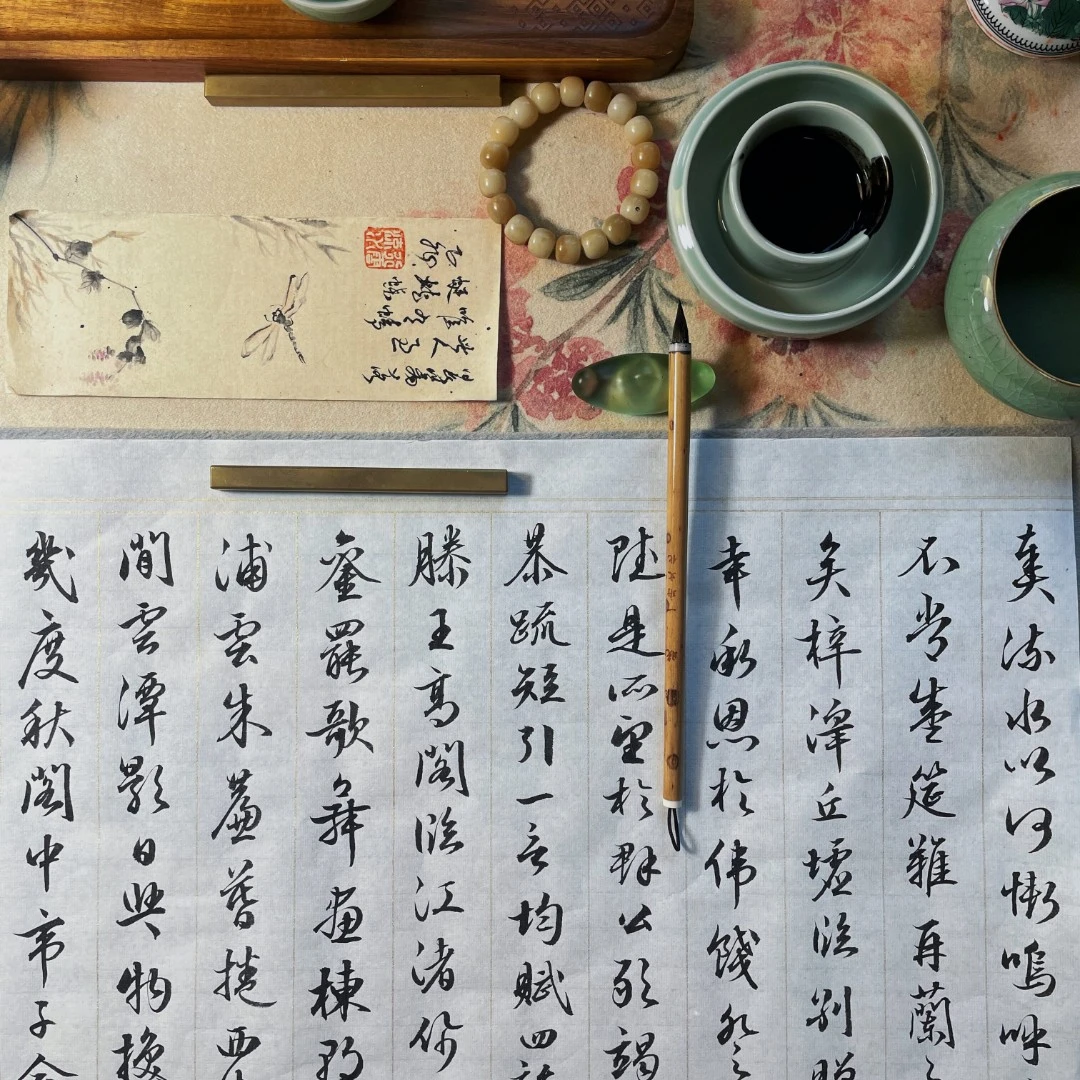 奏流水以何慚嗚呼
不常盛筵難再蘭
矣梓澤丘墟臨別贈
幸承恩於偉餞登
賦是所望於群公敢竭
恭疏短引一言均賦四
滕王高閣臨江渚佩
鑾罷歌舞畫棟朝
浦雲朱簾暮捲西
閒雲潭影日與物換
幾度秋閣中帝子今